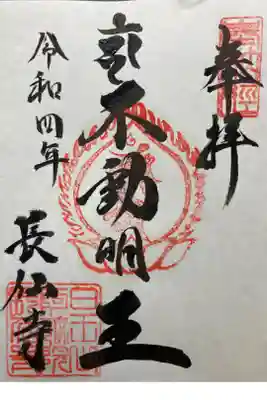 奉拝
不動明王
令和四年
長仙寺